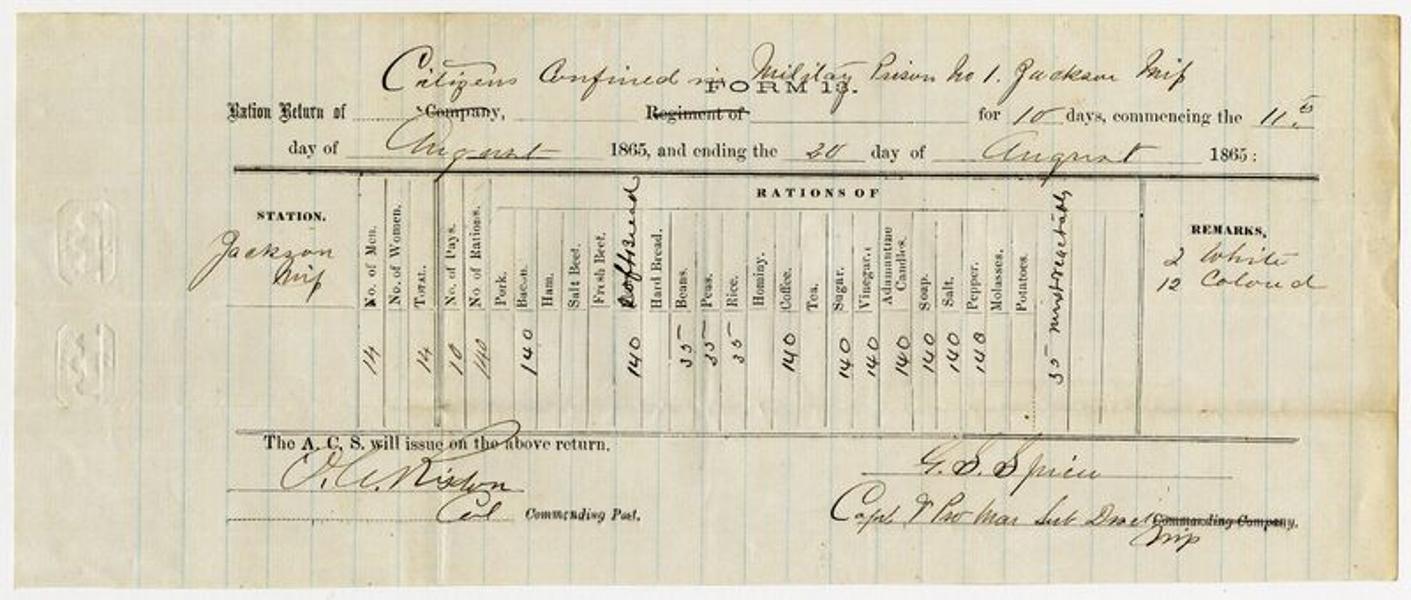 Citizens Confined in Military Prison No 1. Jackson Miss
FORM 13.
Ration Return of Company, Regiment of for 10 days, commencing the 11th
day of August 1865, and ending the 20 day of August 1865:
RATIONS OF
STATION.
Jackson
Miss
No. of Men.
No. of Women.
Total.
No. of Days.
No. of Rations.
Pork.
Bacon.
Ham.
Salt Beef.
Fresh Beef.
Soft Bread
Hard Bread.
Beans.
Peas.
Rice.
Hominy.
Coffee.
Tea.
Sugar.
Vinegar.
Adamantine Candles.
Soap.
Salt.
Pepper.
Molasses.
Potatoes.
35 mixt vegetables
REMARKS,
2 White
12 Colored
14 14 10 140 140 140 35 35 35 140 140 140 140 140 140 140
The A. C. S. will issue on the above return.
Col Commanding Post.
G. S. Spicer
Capt & Pro Mar Sub Commanding Company.
Miss